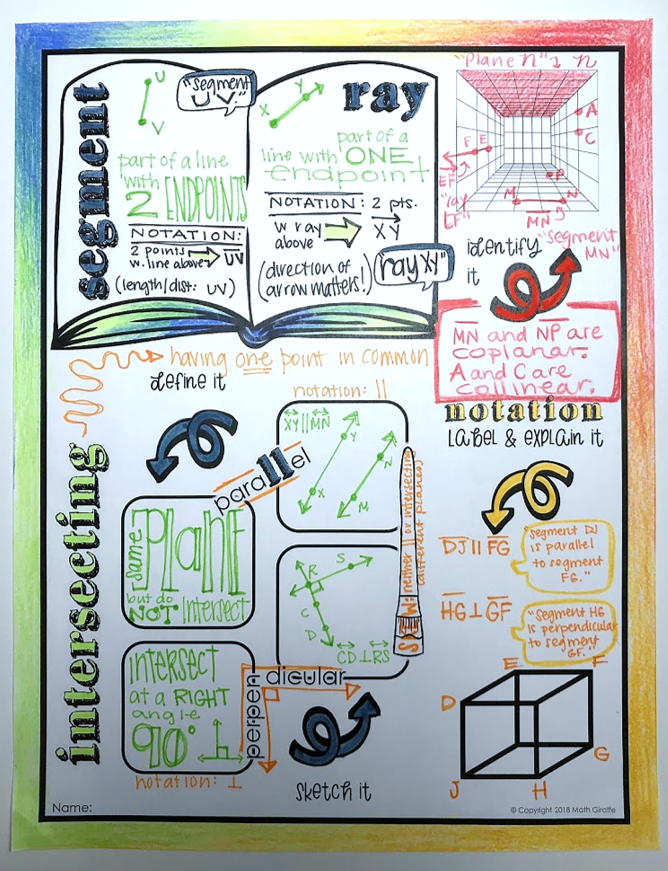 segment
U
V
"segment
UV."
part of a line
with
2 ENDPOINTS
NOTATION:
2 points
w. line above
UV
(length/dist: UV)
ray
X
Y
part of a
line with ONE
endpoint
NOTATION: 2 pts.
w ray
above
XY
(direction of
arrow matters!)
"ray XY"
"Plane n" n
A
C
F E
EF
"ray
EF"
P
M
N
MN
"segment
MN"
identify
it
MN and NP are
coplanar.
A and C are
collinear.
having one point in common
define it
intersecting
notation: ||
XY || MN
Y
X
N
M
parallel
same
PLANE
but do
NOT intersect
SKEW: neither || or intersecting
(different planes)
R
S
C
D
CD⊥RS
intersect
at a RIGHT
angle
90°
notation: ⊥
perpendicular
sketch it
notation
LaBeL & expLaIn iT
DJ || FG
"segment DJ
is parallel
to segment
FG."
HG ⊥ GF
"Segment HG
is perpendicular
to segment
GF."
E
F
D
G
J
H
Name:
© Copyright 2018 Math Giraffe